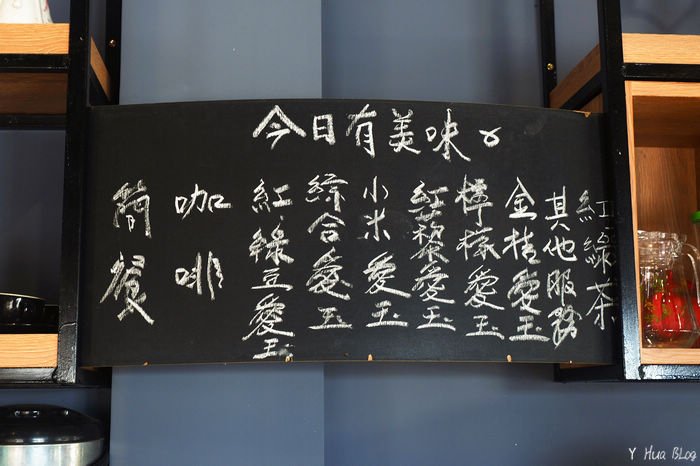 今日有美味
紅綠茶
其他服務
金桔愛玉
檸檬愛玉
紅藜愛玉
小米愛玉
綜合愛玉
紅.綠豆愛玉
咖啡
簡餐
Y Hua BLog